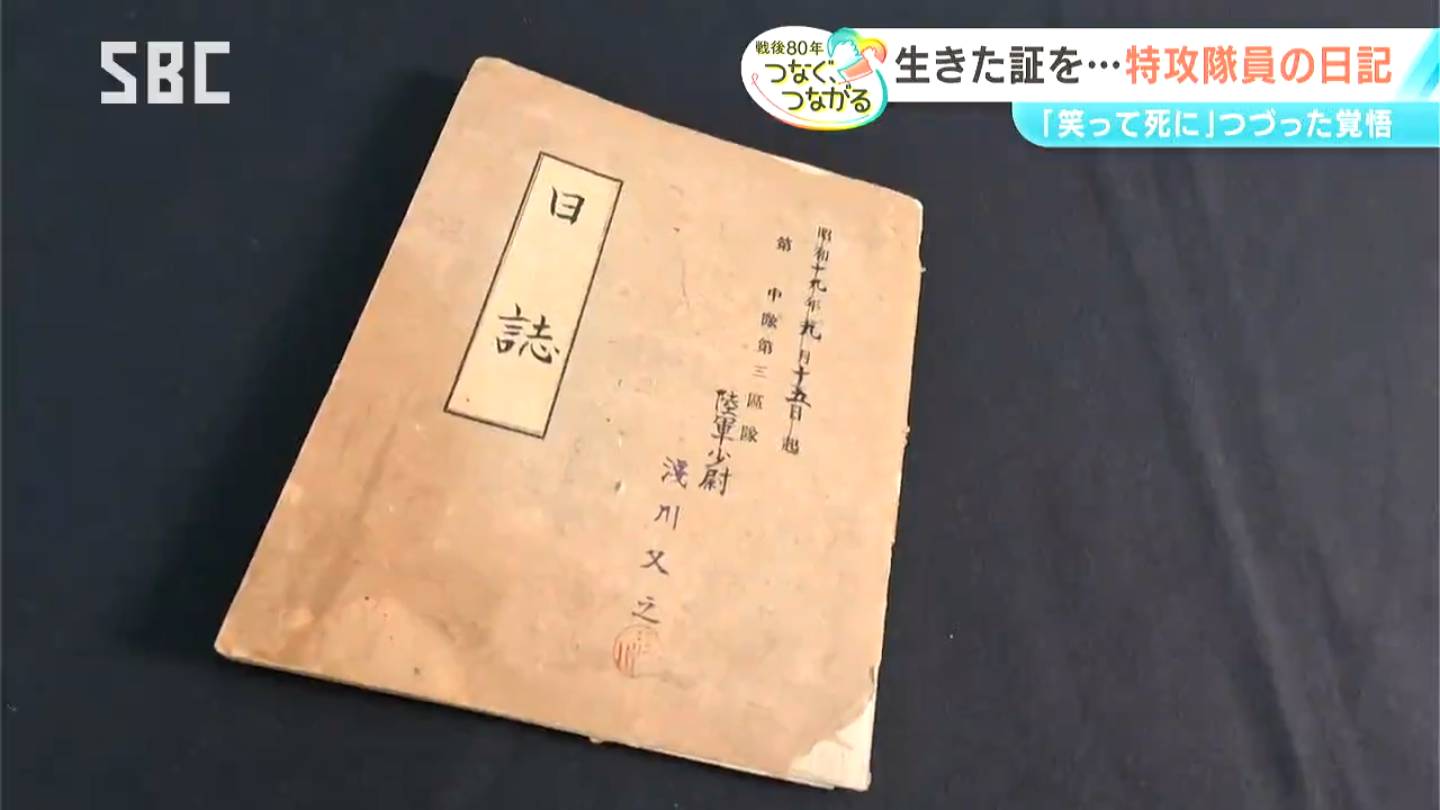 SBC
戦後80年
つなぐ、
つながる
生きた証を…特攻隊員の日記
「笑って死に」つづった覚悟
日誌
昭和十九年九月十五日起
第 中隊第三區隊
陸軍少尉
淺川又之